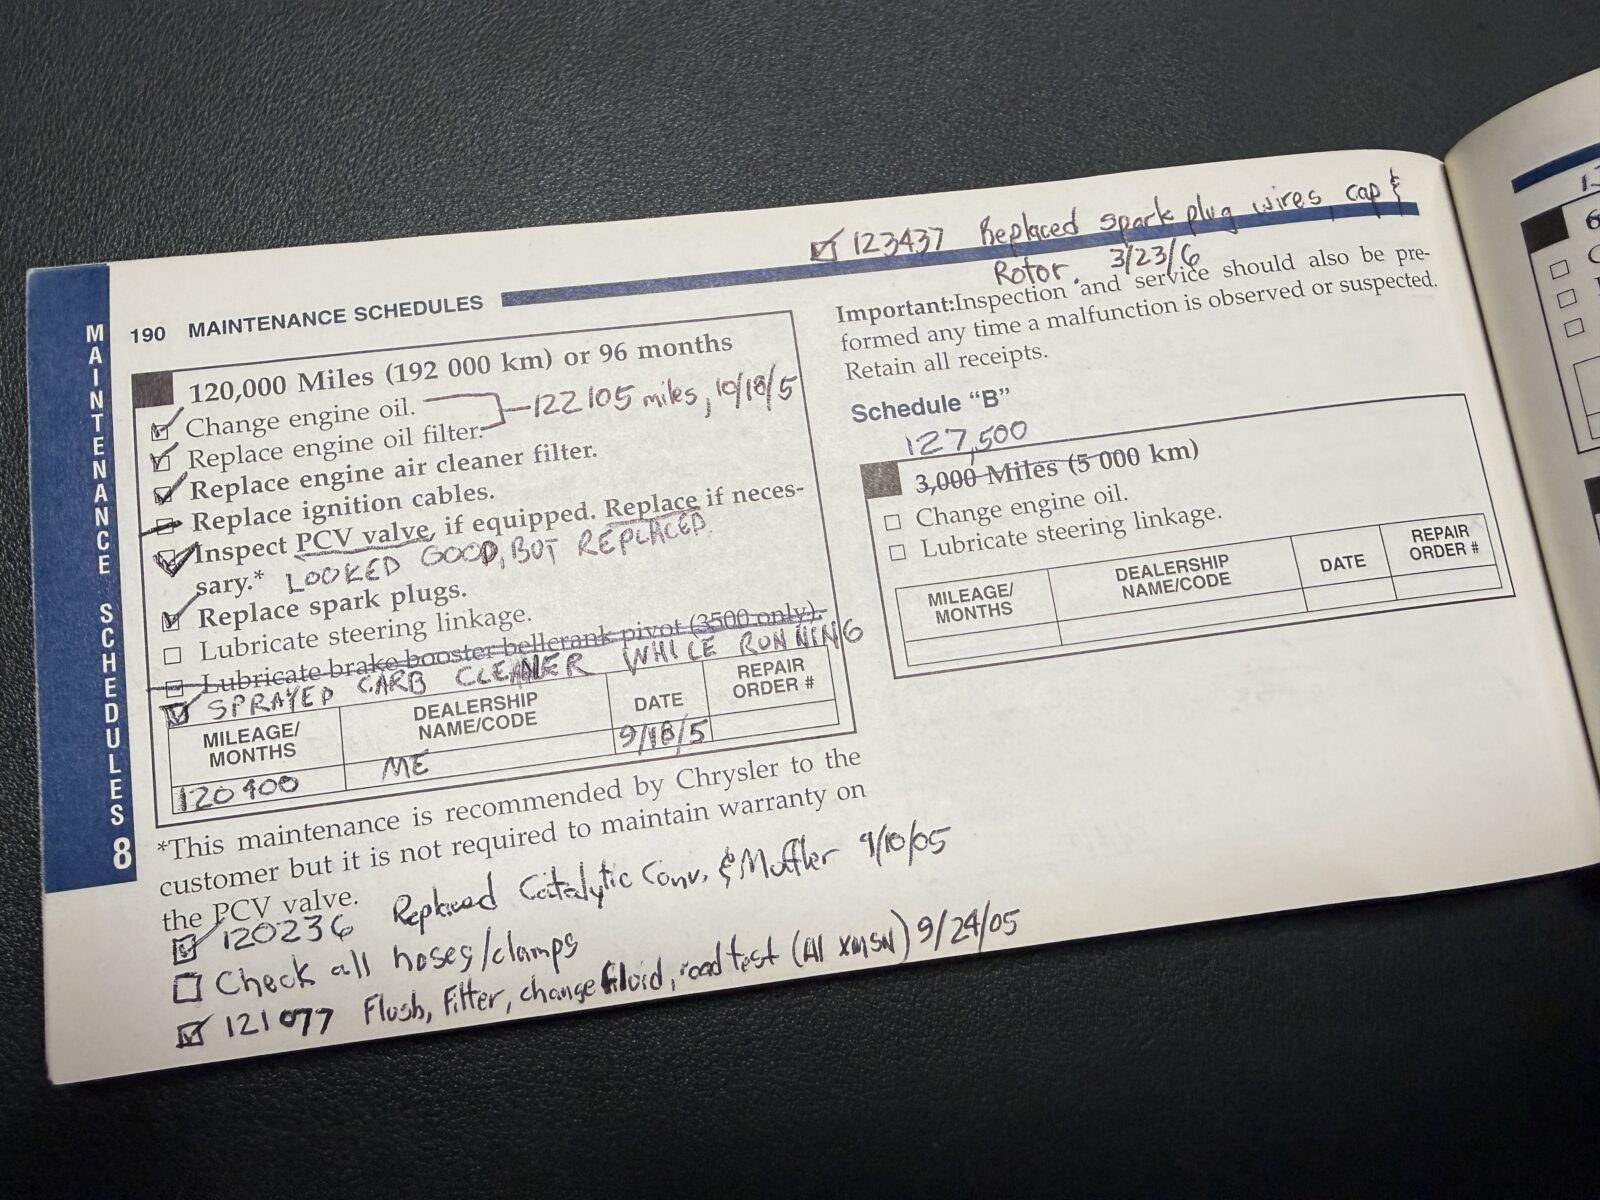 MAINTENANCE SCHEDULES
8
190 MAINTENANCE SCHEDULES
120,000 Miles (192 000 km) or 96 months
Change engine oil.
122105 miles, 10/18/5
Replace engine oil filter.
Replace engine air cleaner filter.
Replace ignition cables.
Inspect PCV valve, if equipped. Replace if neces-
sary.* LOOKED GOOD, BUT REPLACED.
Replace spark plugs.
Lubricate steering linkage.
Lubricate brake booster bellcrank pivot (3500 only).
SPRAYED CARB CLEANER WHILE RUNNING
MILEAGE/
MONTHS
DEALERSHIP
NAME/CODE
DATE
REPAIR
ORDER #
120400
ME
9/18/5
*This maintenance is recommended by Chrysler to the
customer but it is not required to maintain warranty on
the PCV valve.
120236 Replaced Catalytic Conv. & Muffler 9/10/05
Check all hoses/clamps
121077 Flush, Filter, change fluid, road test (A1 XMSN) 9/24/05
123437 Replaced spark plug wires, cap &
Rotor. 3/23/6
Important:Inspection and service should also be pre-
formed any time a malfunction is observed or suspected.
Retain all receipts.
Schedule “B”
127,500
3,000 Miles (5 000 km)
Change engine oil.
Lubricate steering linkage.
MILEAGE/
MONTHS
DEALERSHIP
NAME/CODE
DATE
REPAIR
ORDER #